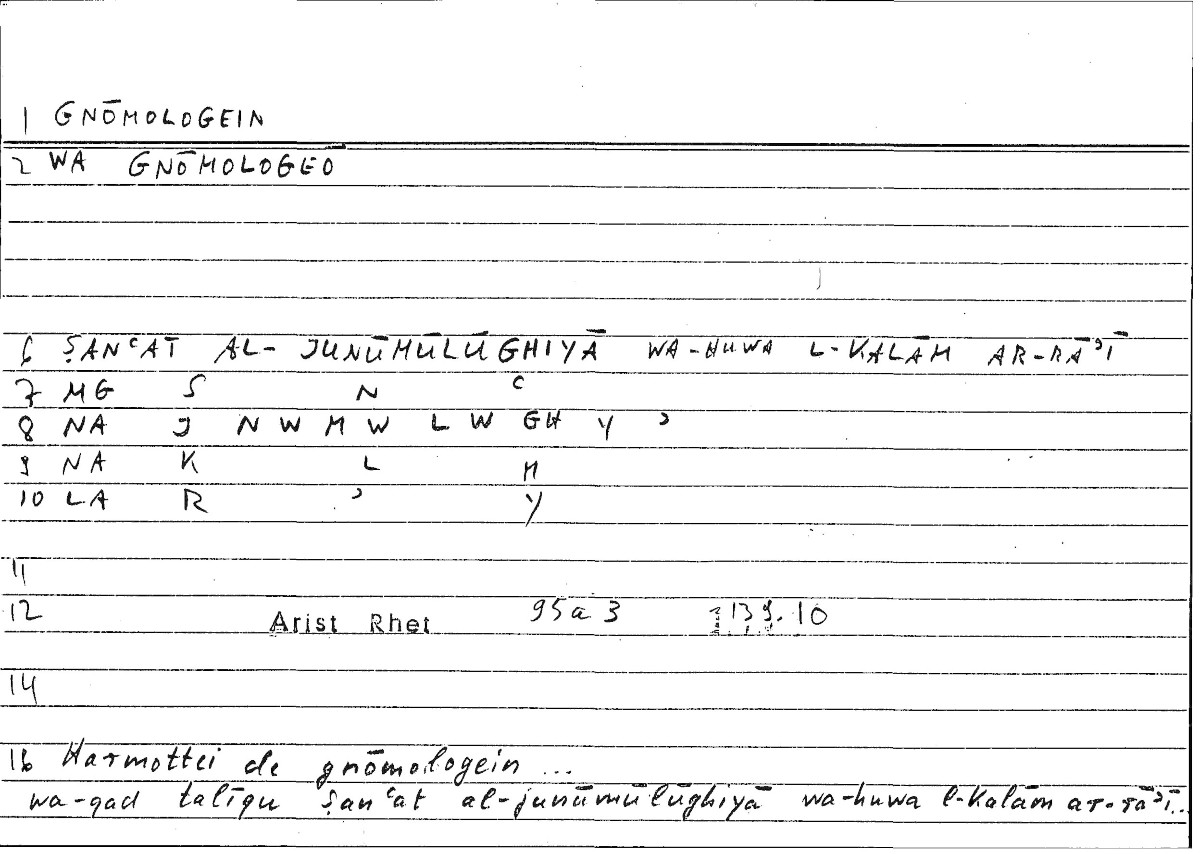 1 GNŌMOLOGEIN
2 WA GNŌMOLOGEŌ
6 ṢANʿAT AL-JUNŪMŪLŪGHIYĀ WA-HUWA L-KALĀM AR-RĀʾĪ
7 MG S N ʿ
8 NA J N W M W L W GH Y ʾ
9 NA K L M
10 LA R ʾ Y
11
12 Arist Rhet 95a3 139.10
14
16 Harmottei de gnōmologein ...
wa-qad talīqu ṣanʿat al-junūmūlūghiyā wa-huwa l-kalām ar-rāʾī...